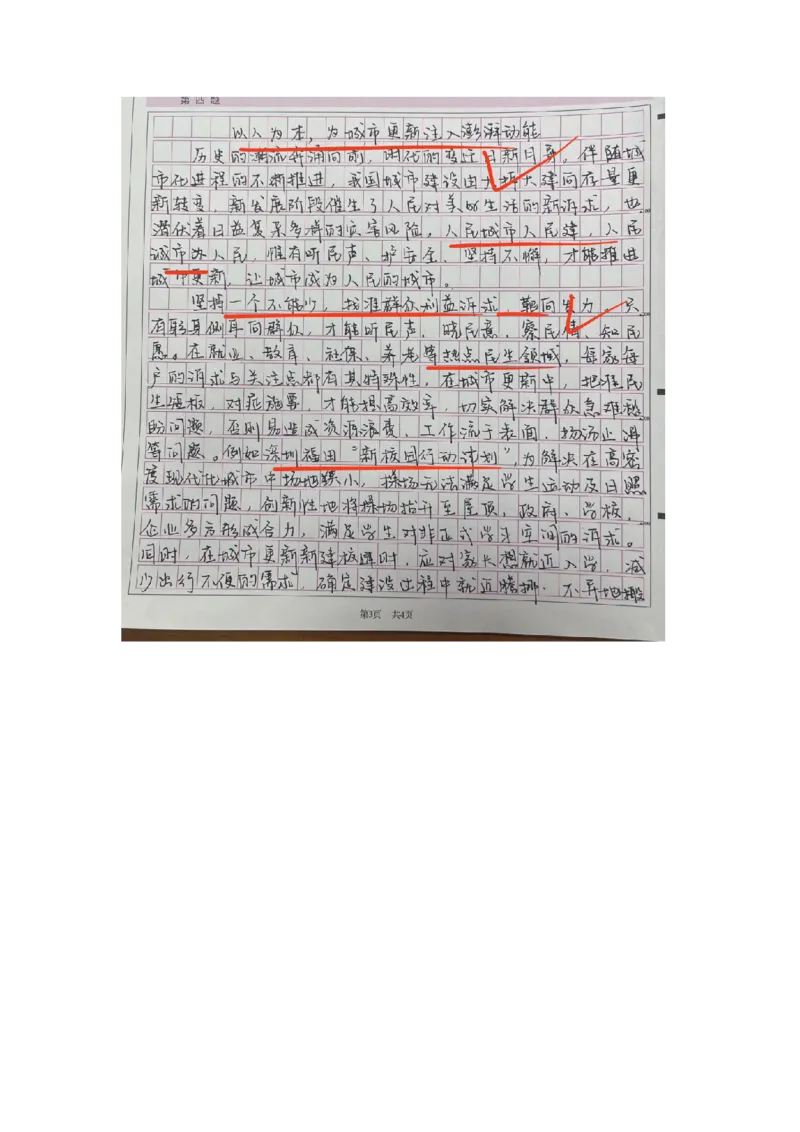 第四题
以人为本，为城市更新注入澎湃动能
历史的潮流奔涌向前，时代的变迁日新日异。伴随城
市化进程的不断推进，我国城市建设由大拆大建向存量更
新转变，新发展阶段催生了人民对美好生活的新诉求，也
潜伏着日益复杂多样的灾害风险，人民城市人民建，人民
城市为人民，惟有听民声、护安全、坚持不懈，才能推进
城市更新，让城市成为人民的城市。
坚持一个不能少，找准群众利益诉求，靶向发力。只
有躬身侧耳向群众，才能听民声、晓民意、察民情、知民
愿。在就业、教育、社保、养老等热点民生领域，每家每
户的诉求与关注点都有其特殊性，在城市更新中，地准民
生短板，对症施策，才能提高效率，切实解决群众急难愁
盼问题，否则易造成资源浪费、工作流于表面、扬汤止沸
等问题。例如深圳福田“新校园行动计划”，为解决在高密
度现代化城市中场地狭小，操场无法满足学生运动及日照
需求的问题，创新性地将操场抬升至屋顶，政府、学校、
企业多方形成合力，满足学生对非正式学习空间的诉求。
同时，在城市更新新建校区时，应对家长想就近入学，减
少出行不便的需求，确定建设过程中就近腾挪、不异地搬
第3页 共4页